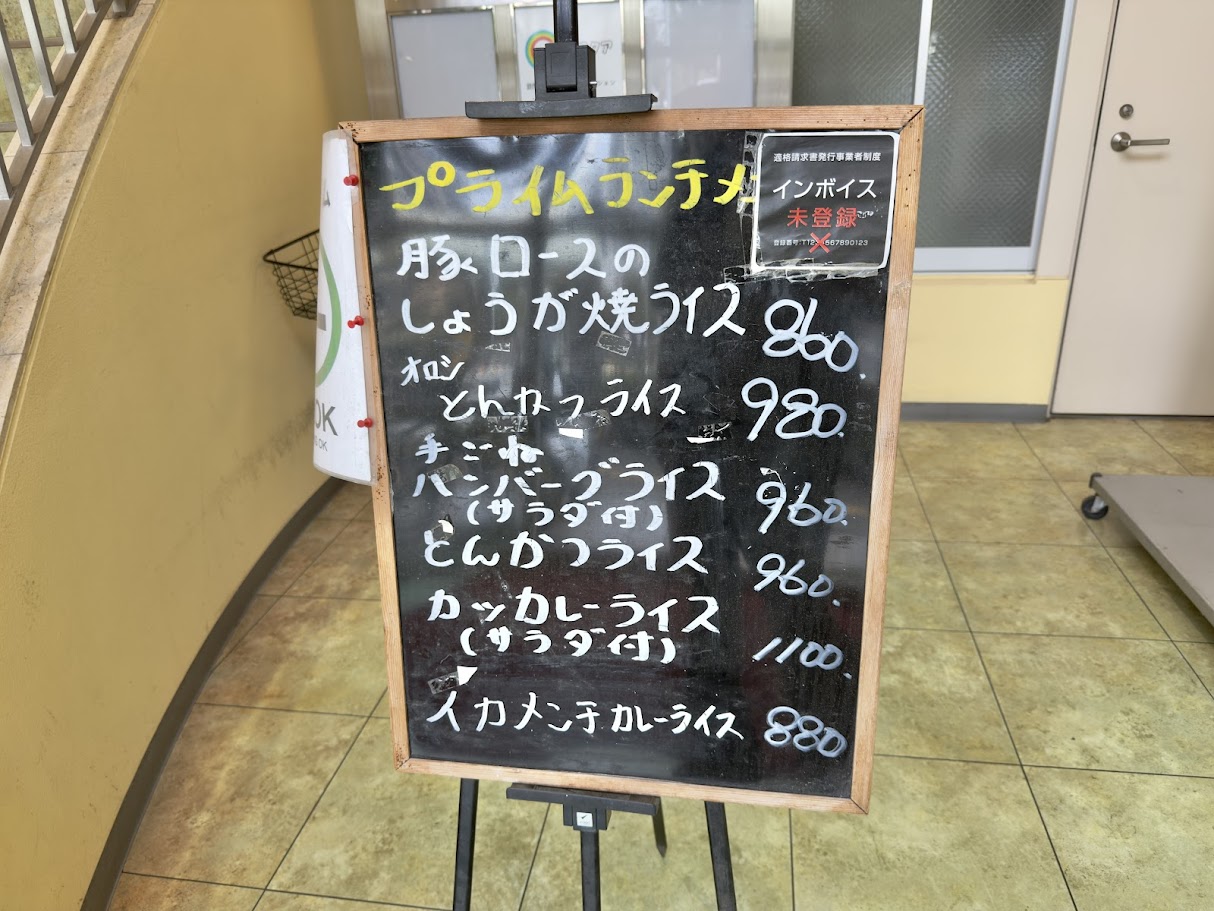 プライムランチメ
適格請求書発行事業者制度
インボイス
未登録
豚ロースの
しょうが焼ライス 860.
オロシ
とんかつライス 980.
手ごね
ハンバーグライス
(サラダ付) 960.
とんかつライス 960.
カツカレーライス
(サラダ付) 1100.
イカメンチカレーライス 880
OK
OK